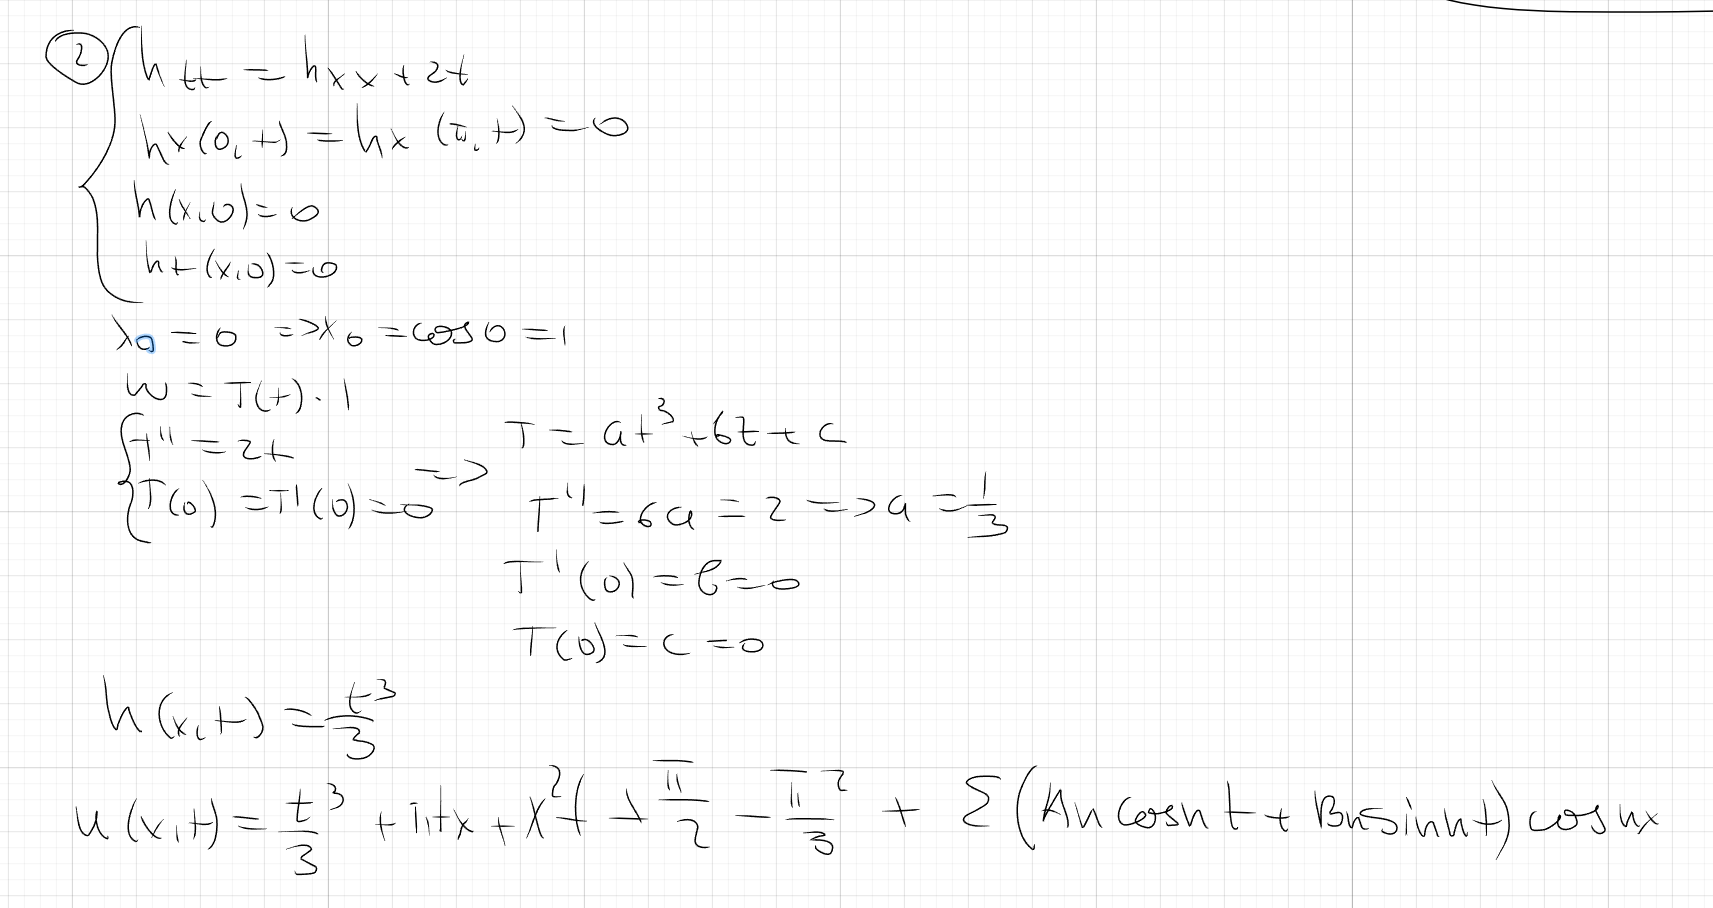 2
h tt = hxx + 2t
hx(0, t) = hx (π, t) = 0
h(x,0) = 0
ht(x,0) = 0
λ0 = 0 => x0 = cos0 = 1
w = T(t) · 1
T'' = 2t
T(0) = T'(0) = 0 =>
T = at³ + bt + c
T'' = 6a = 2 => a = 1/3
T'(0) = b = 0
T(0) = c = 0
h(x,t) = t³/3
u(x,t) = t³/3 + πtx + x²t + π/2 - π²/3 + Σ(An cosn t + Bn sinn t) cos nx